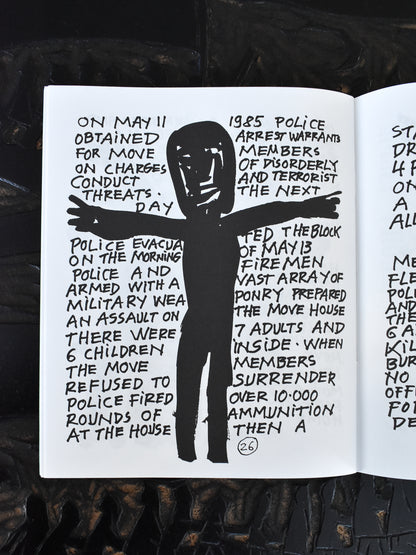 ON MAY 11 1985 POLICE
OBTAINED ARREST WARRANTS
FOR MOVE MEMBERS
ON CHARGES OF DISORDERLY
CONDUCT AND TERRORIST
THREATS. THE NEXT
DAY
POLICE EVACUA TED THE BLOCK
ON THE MORNING OF MAY 13
POLICE AND FIREMEN
ARMED WITH A VAST ARRAY OF
MILITARY WEA PONRY PREPARED
AN ASSAULT ON THE MOVE HOUSE
THERE WERE 7 ADULTS AND
6 CHILDREN INSIDE. WHEN
THE MOVE MEMBERS
REFUSED TO SURRENDER
POLICE FIRED OVER 10.000
ROUNDS OF AMMUNITION
AT THE HOUSE THEN A
26
DR
ON
A
ALL
ME
FLE
AND
THE
6 A
KIL
BUR
NO
OFF
DE